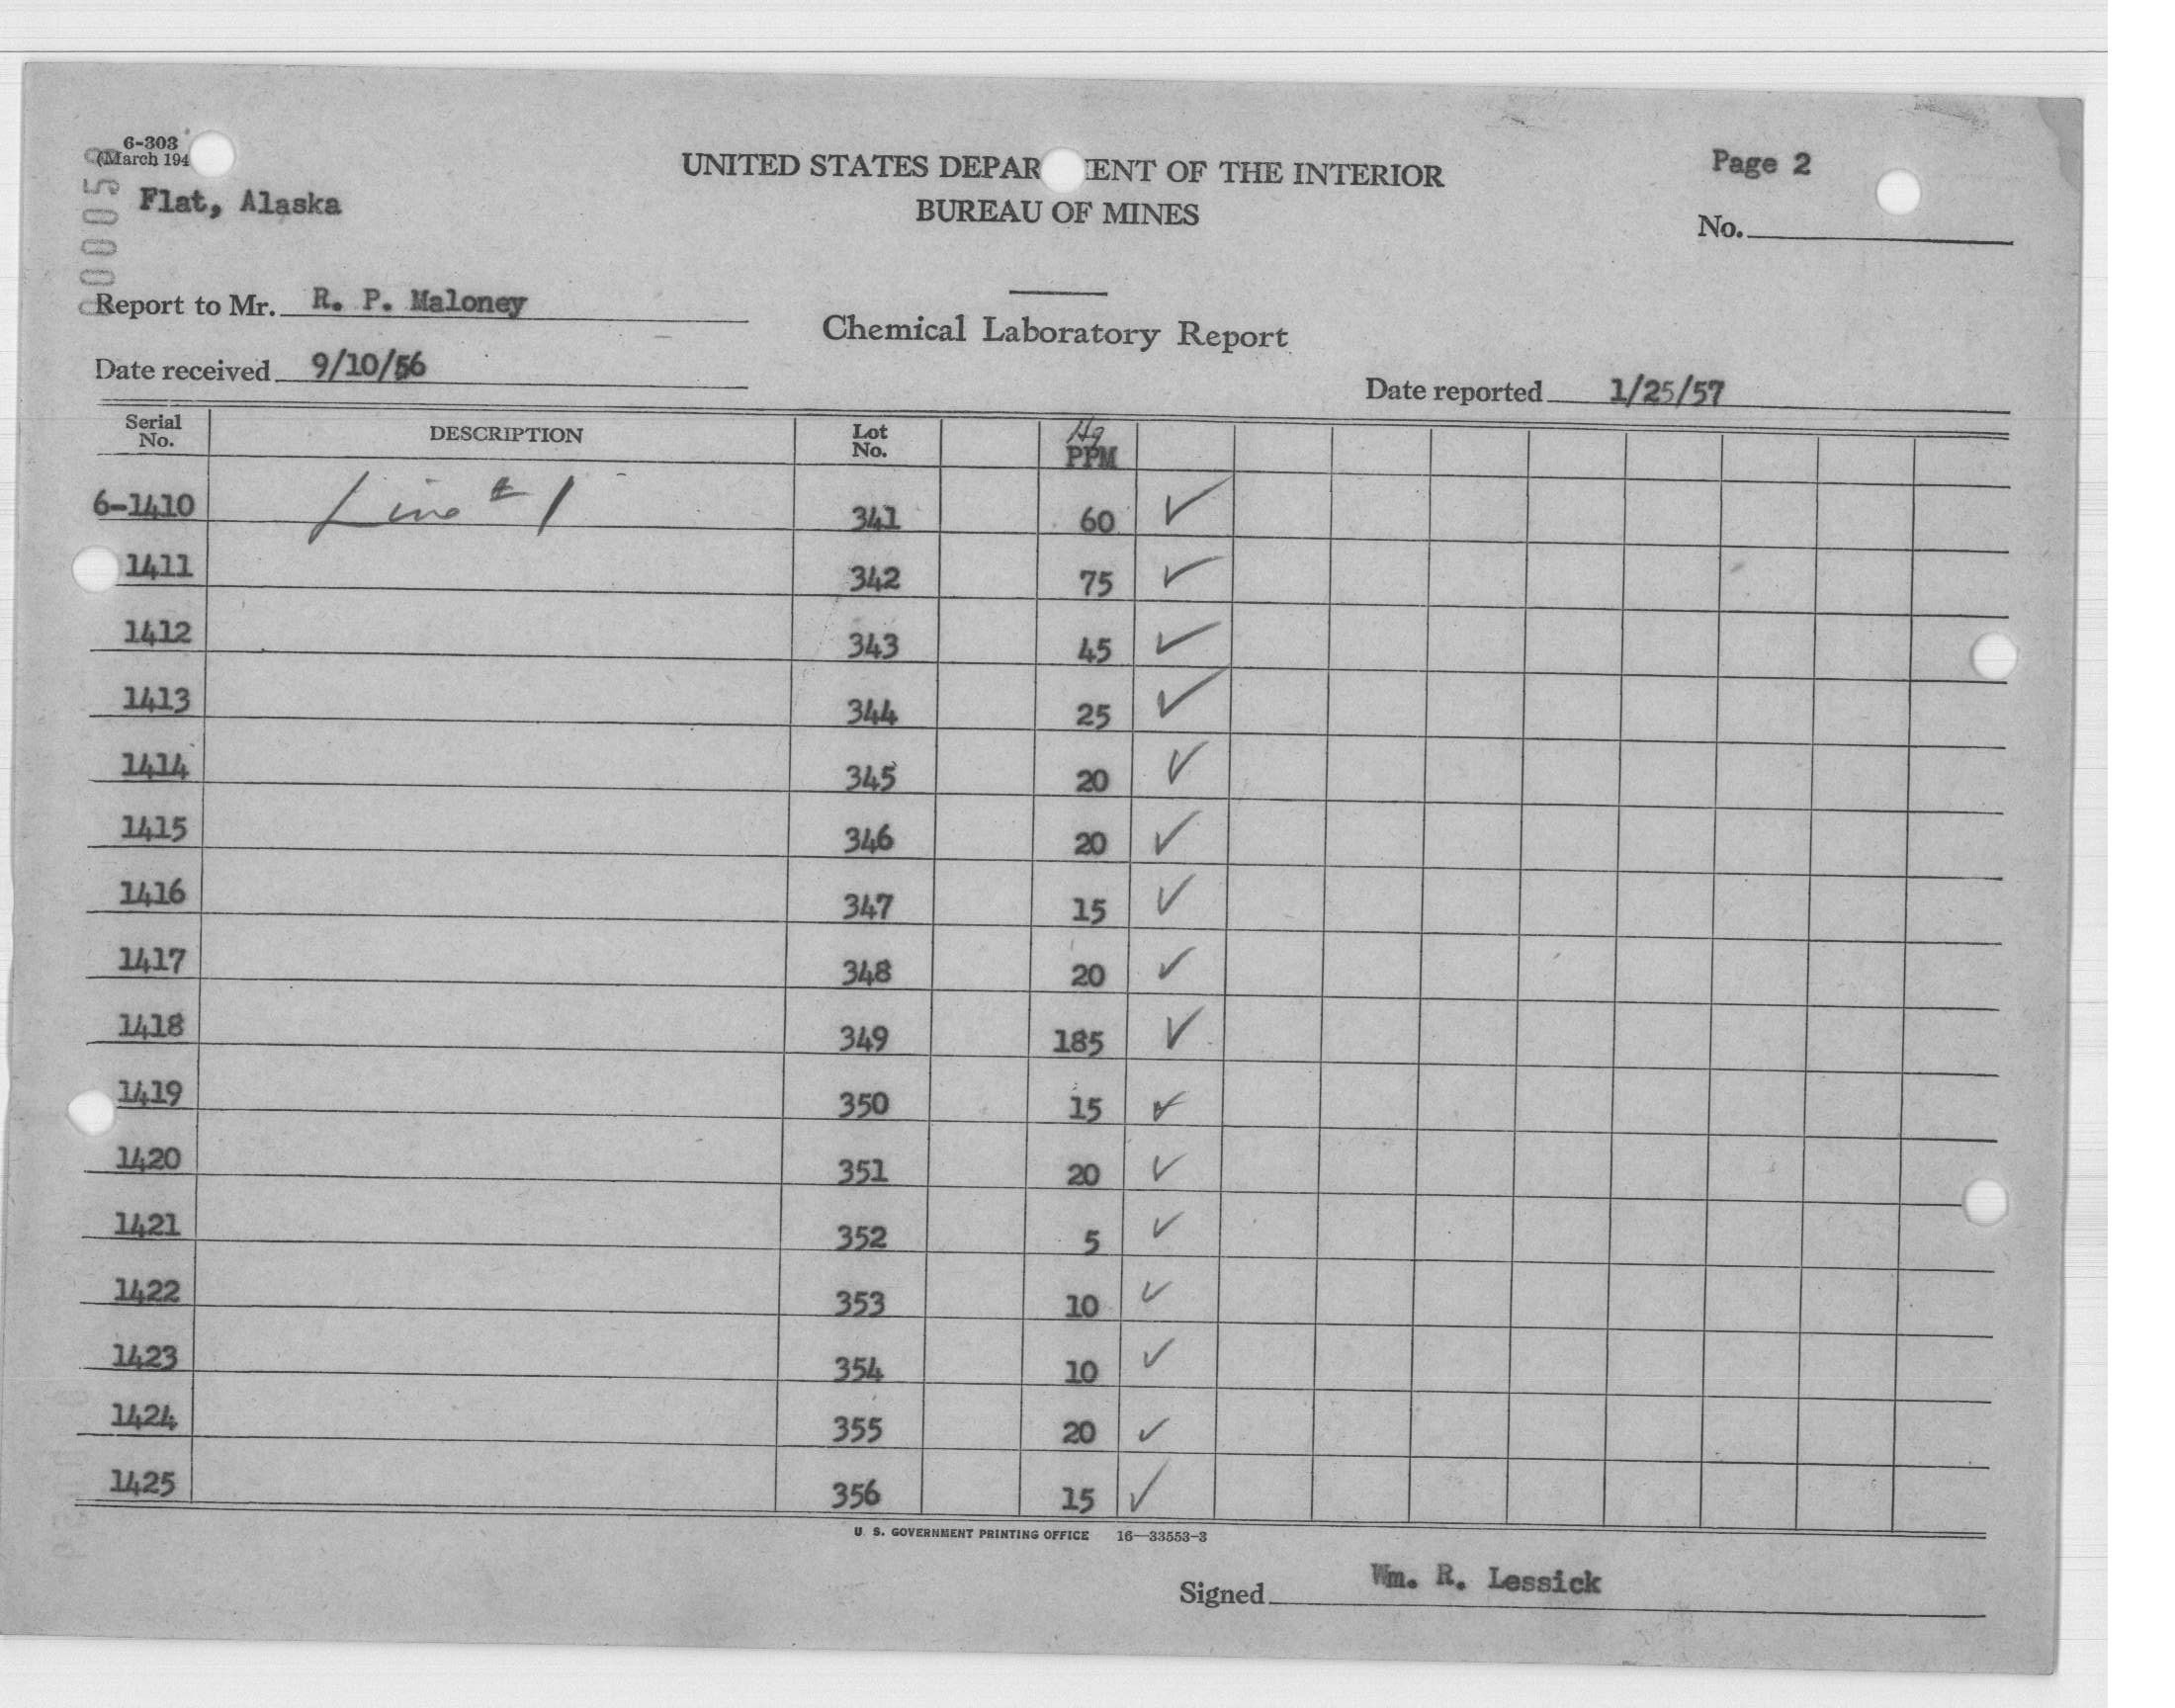 6-303
(March 194
Flat, Alaska
UNITED STATES DEPAR ENT OF THE INTERIOR
BUREAU OF MINES
Page 2
No.
Report to Mr. R. P. Maloney
Chemical Laboratory Report
Date received 9/10/56
Date reported 1/25/57
Serial No. DESCRIPTION Lot No. Hg PPM
6-1410 Line #1 341 60 ✓
1411 342 75 ✓
1412 343 45 ✓
1413 344 25 ✓
1414 345 20 ✓
1415 346 20 ✓
1416 347 15 ✓
1417 348 20 ✓
1418 349 185 ✓
1419 350 15 ✓
1420 351 20 ✓
1421 352 5 ✓
1422 353 10 ✓
1423 354 10 ✓
1424 355 20 ✓
1425 356 15 ✓
U. S. GOVERNMENT PRINTING OFFICE 16—33553-3
Signed Wm. R. Lessick